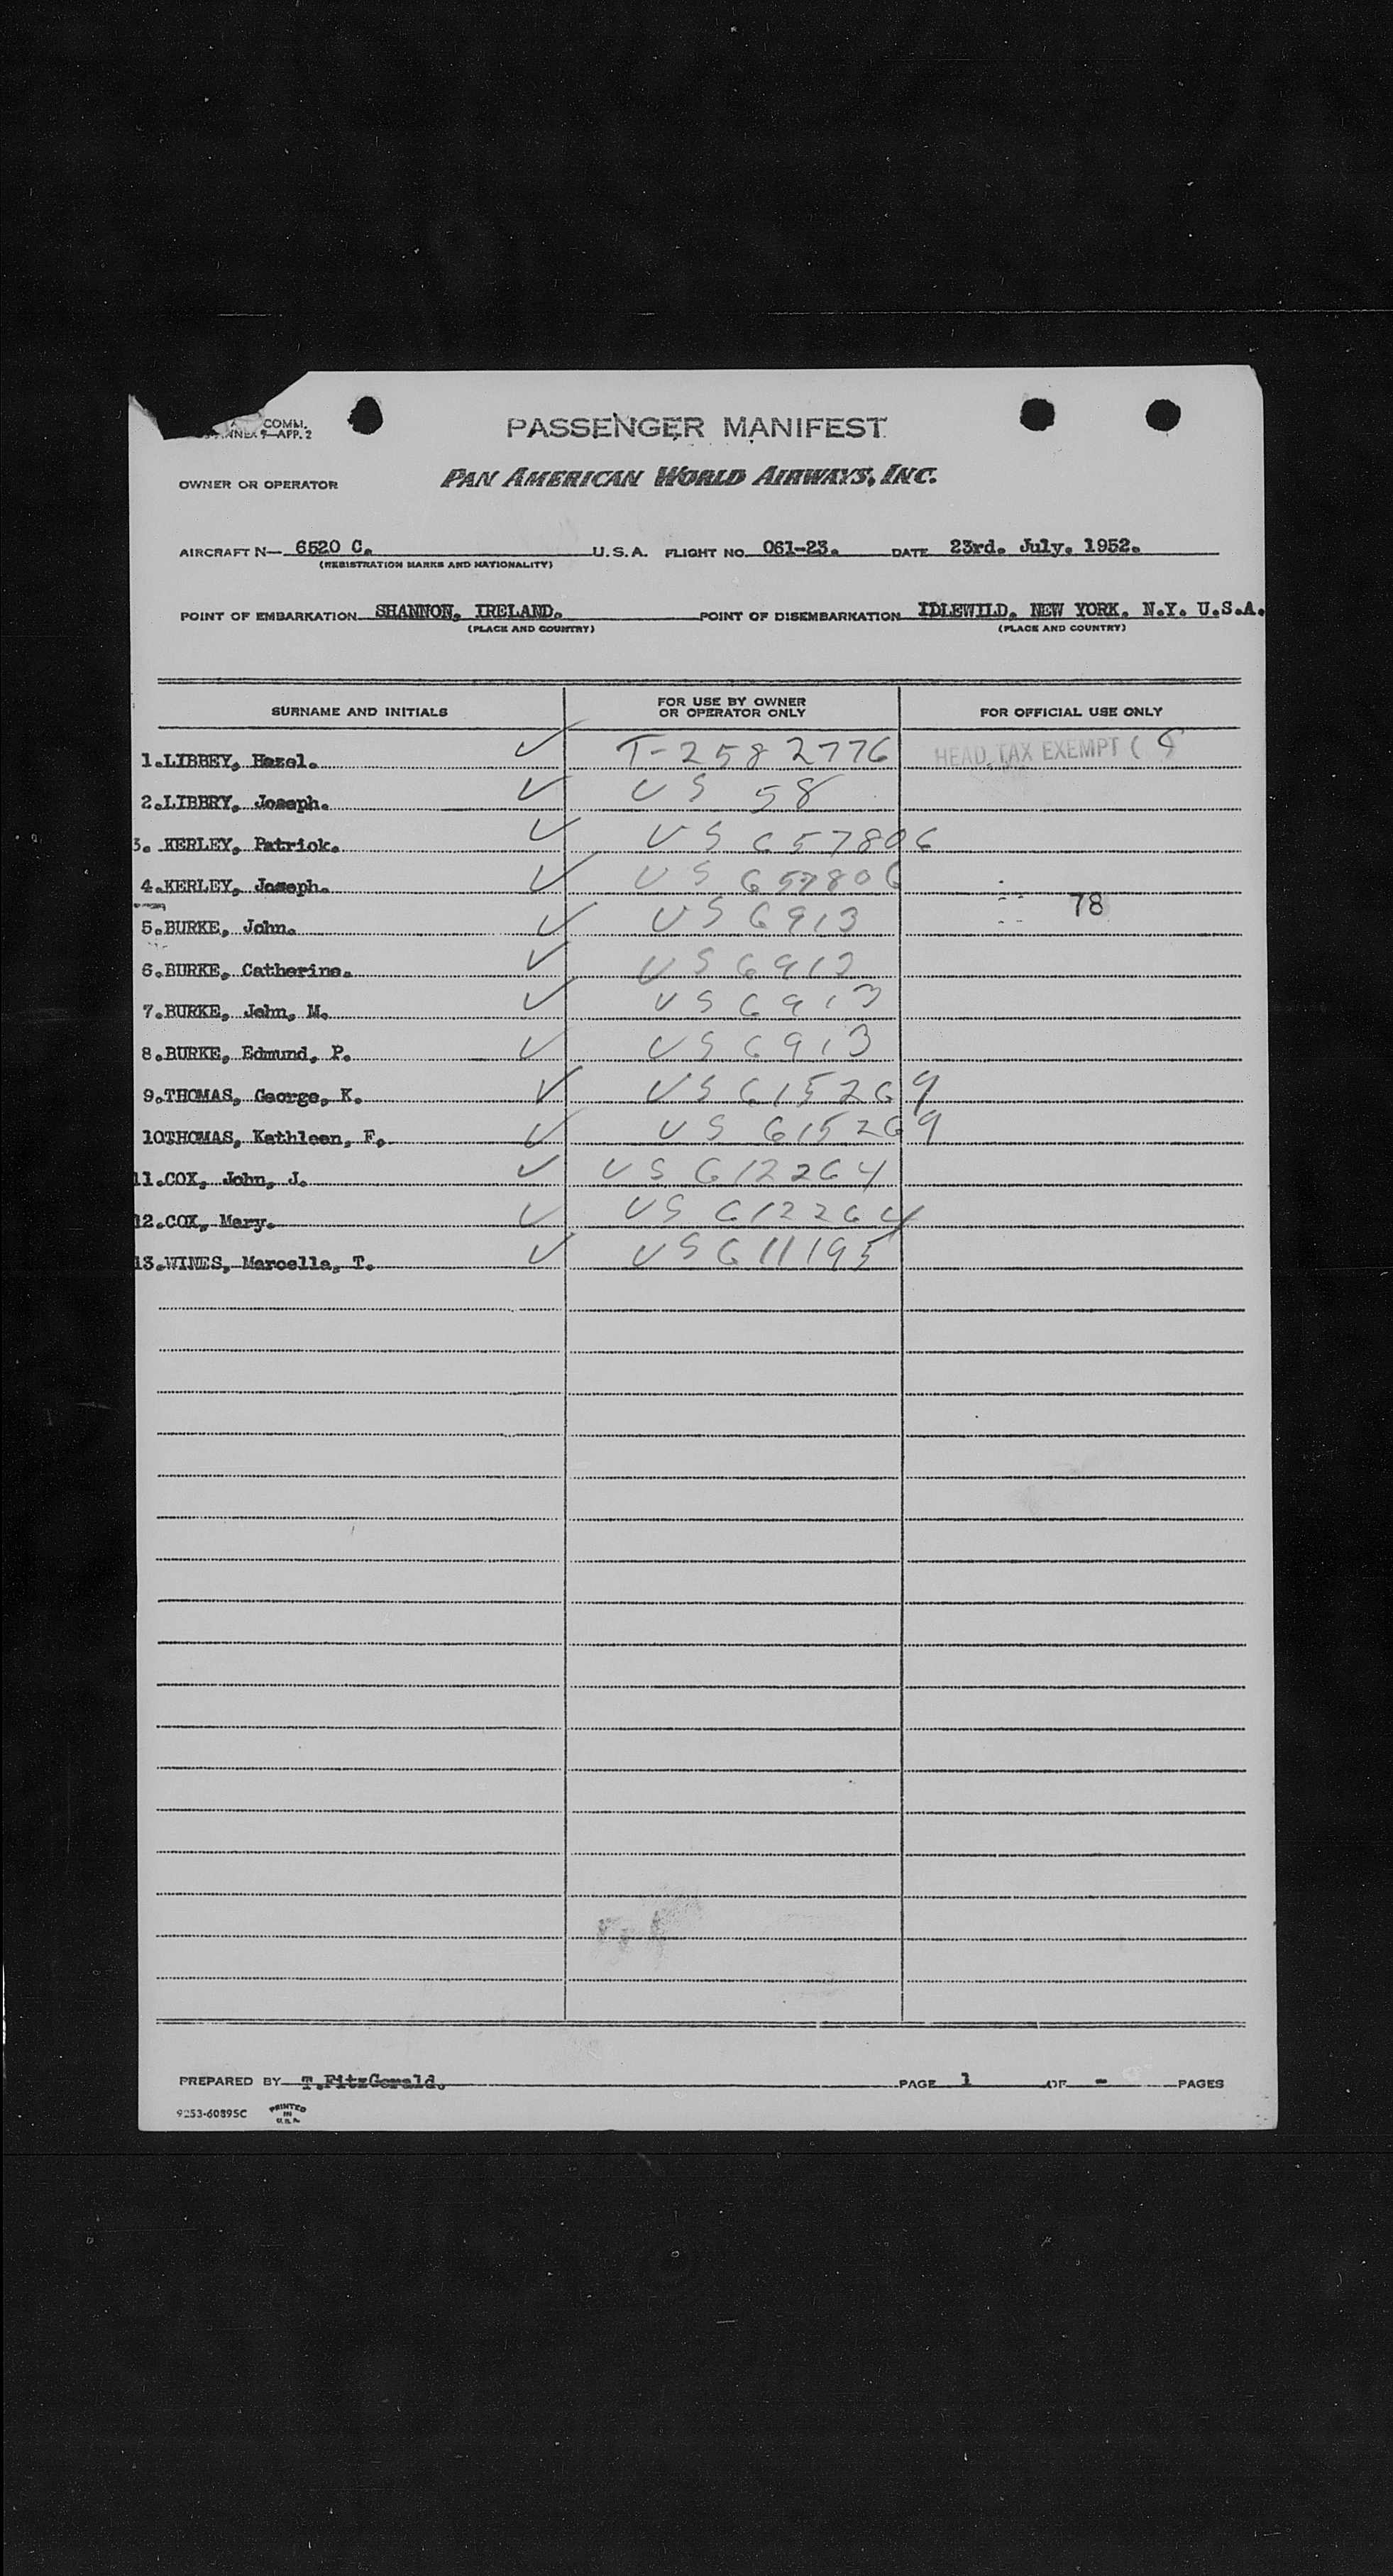 COMM.
ANNEX 9—APP. 2
PASSENGER MANIFEST
OWNER OR OPERATOR PAN AMERICAN WORLD AIRWAYS, INC.
AIRCRAFT N— 6520 C. U.S.A. FLIGHT NO. 061-23. DATE 23rd. July. 1952.
(REGISTRATION MARKS AND NATIONALITY)
POINT OF EMBARKATION SHANNON, IRELAND. POINT OF DISEMBARKATION IDLEWILD, NEW YORK. N.Y. U.S.A.
(PLACE AND COUNTRY) (PLACE AND COUNTRY)
SURNAME AND INITIALS FOR USE BY OWNER OR OPERATOR ONLY FOR OFFICIAL USE ONLY
1. LIBBEY, Hazel. ✓ T-2582776 HEAD TAX EXEMPT (
2. LIBBRY, Joseph. ✓ US 58
3. KERLEY, Patrick. ✓ US 657806
4. KERLEY, Joseph. ✓ US 657806
78
5. BURKE, John. ✓ US 6913
6. BURKE, Catherine. ✓ US 6913
7. BURKE, John, M. ✓ US 6913
8. BURKE, Edmund, P. ✓ US 6913
9. THOMAS, George, K. ✓ US 615269
10 THOMAS, Kathleen, F. ✓ US 615269
11. COX, John, J. ✓ US 612264
12. COX, Mary. ✓ US 612264
13. WINES, Marcella, T. ✓ US 611195
PREPARED BY T.FitzGerald. PAGE 1 OF - PAGES
9253-60895C PRINTED IN U.S.A.